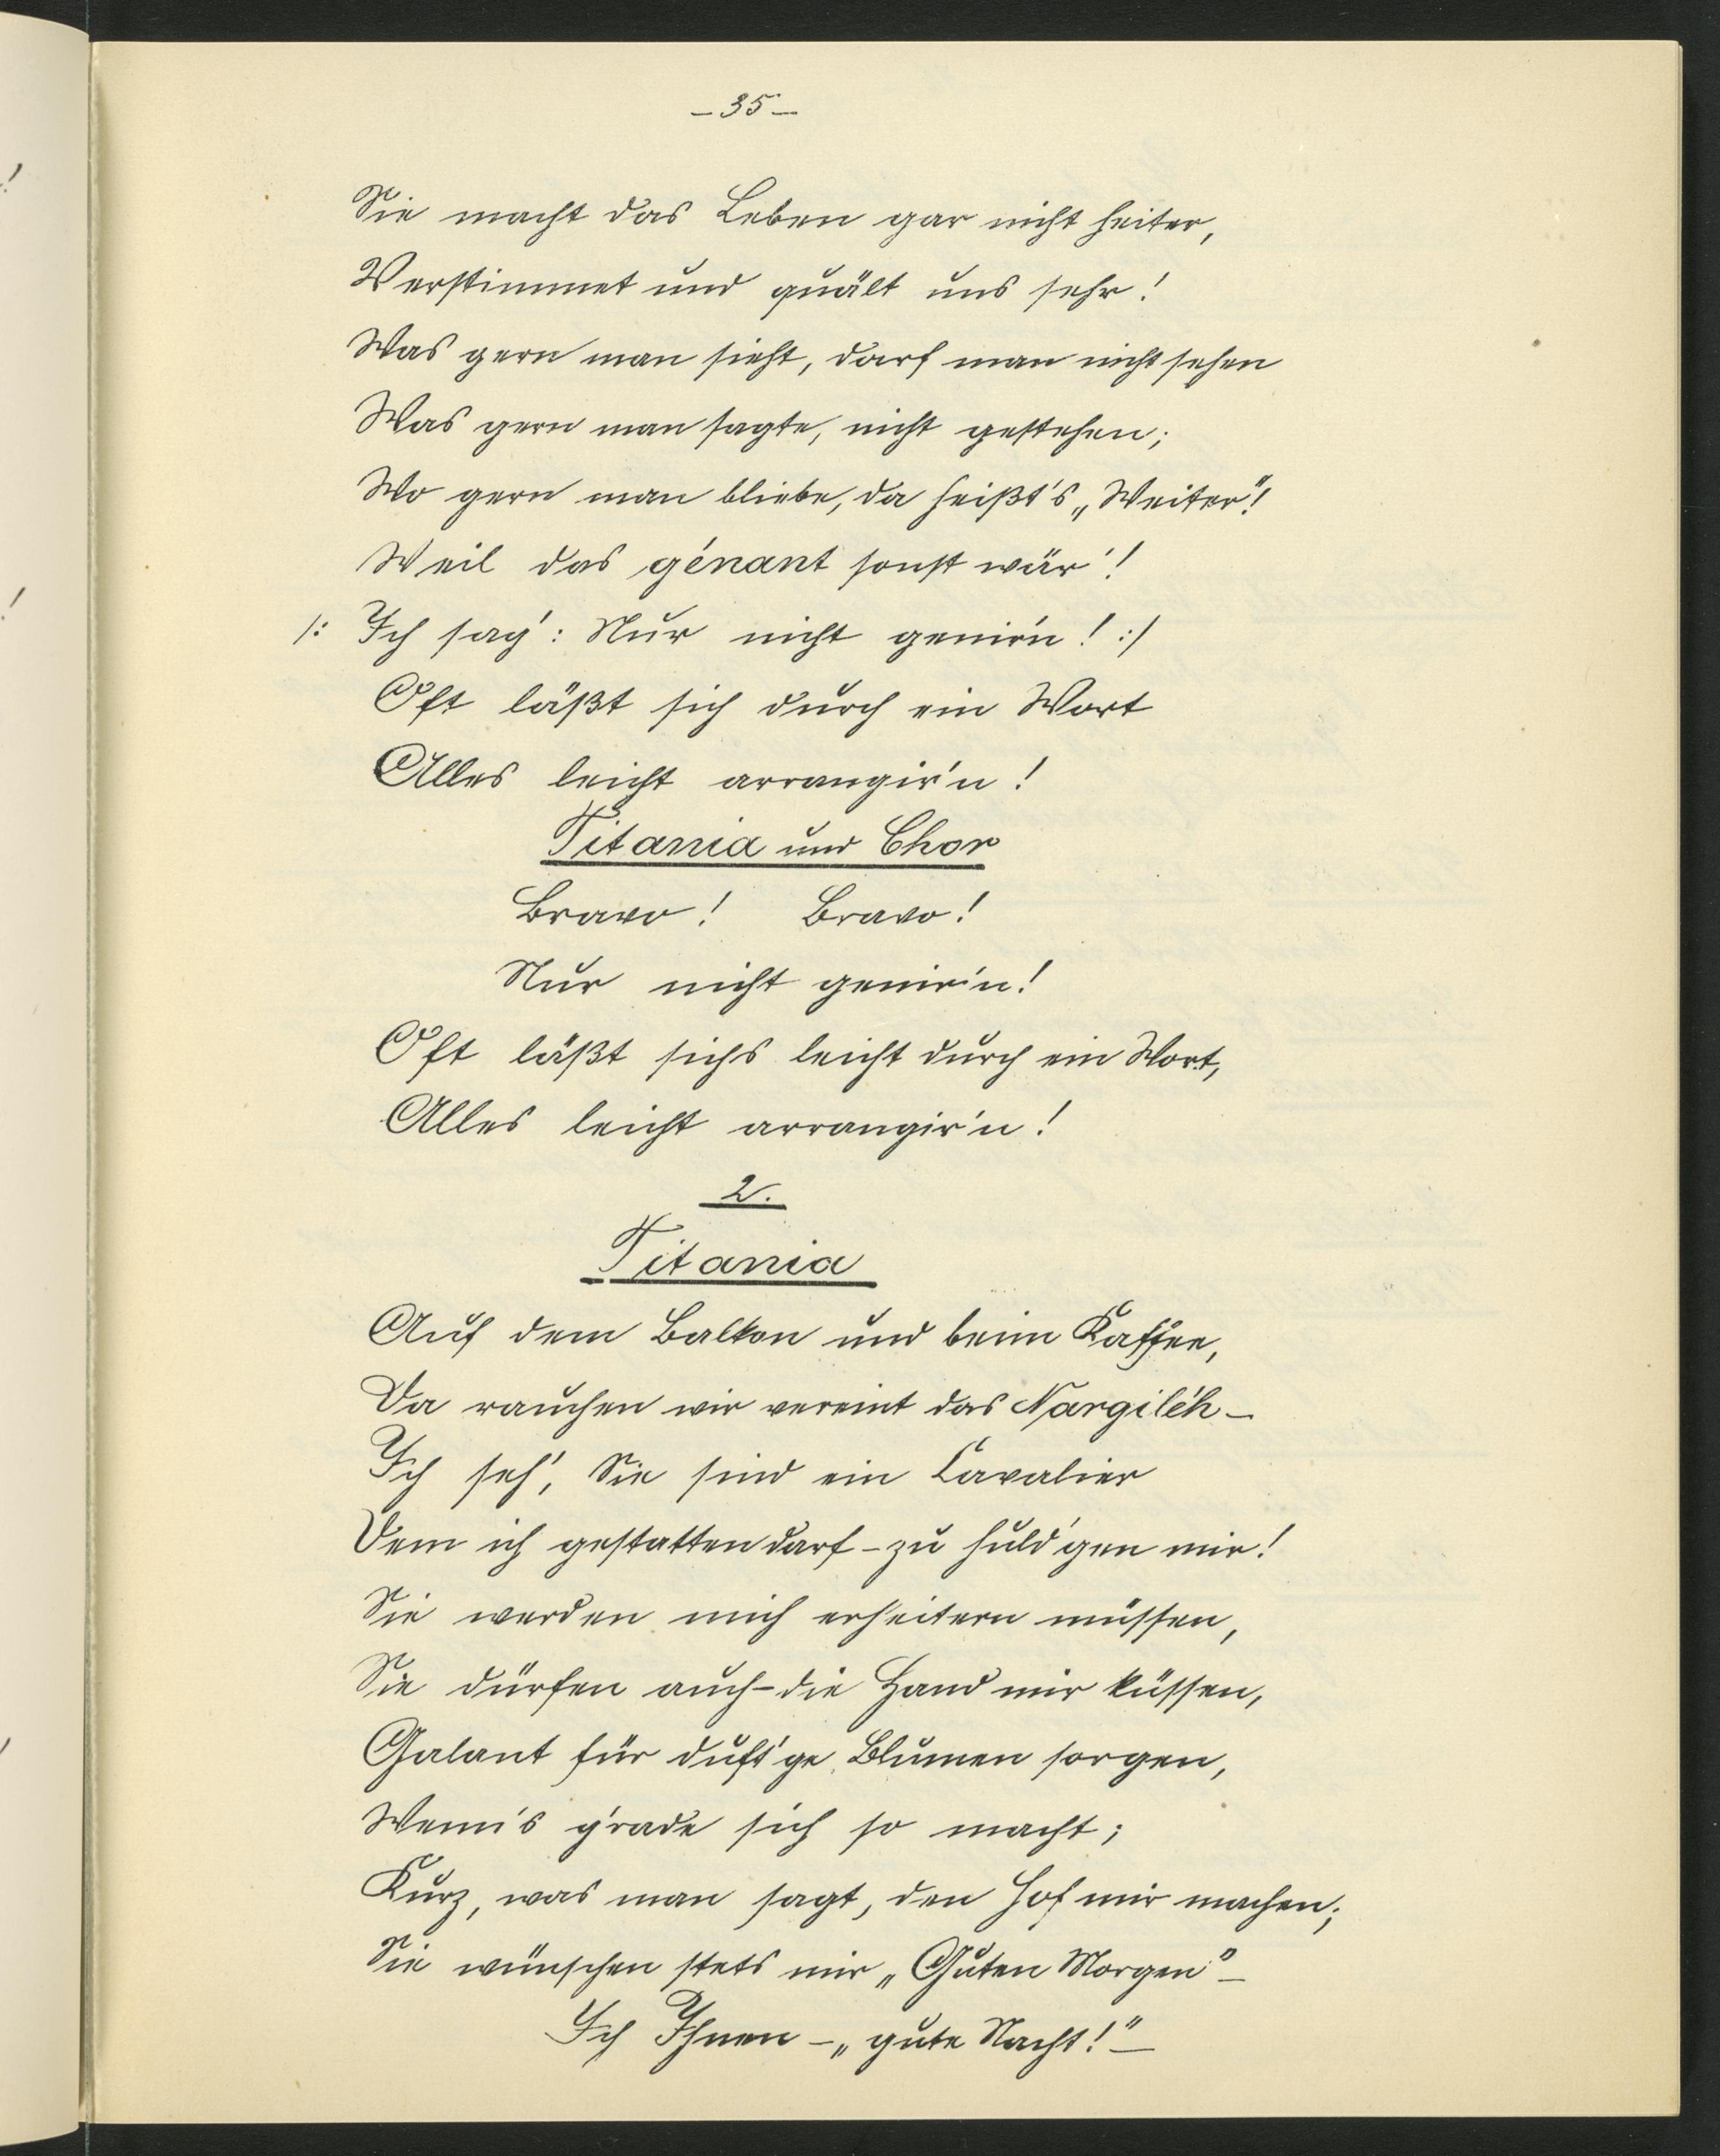 - 35 -
Sie macht das Leben gar nicht heiter,
Verstimmet und quält uns sehr!
Was gern man sieht, darf man nicht sehen
Was gern man sagte, nicht gestehen;
Wo gern man bliebe, da heißt's „Weiter"!
Weil das génant sonst wär'!
/: Ich sag': Nur nicht genir'n! :/
Oft läßt sich durch ein Wort
Alles leicht arrangir'n!
Titania und Chor
Bravo! Bravo!
Nur nicht genir'n!
Oft läßt sichs leicht durch ein Wort,
Alles leicht arrangir'n!
2.
Titania
Auf dem Balkon und beim Kaffee,
Da rauchen wir vereint das Nargiléh -
Ich seh', Sie sind ein Cavalier
Dem ich gestatten darf - zu huld'gen mir!
Sie werden mich erheitern müssen,
Sie dürfen auch - die Hand mir küssen,
Galant für duft'ge Blumen sorgen,
Wenn's g'rade sich so macht;
Kurz, was man sagt, den Hof mir machen;
Sie wünschen stets mir „Guten Morgen" -
Ich Ihnen - „gute Nacht!" -